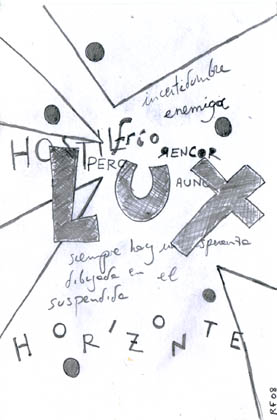 incertidumbre
enemiga
HOSTIL
Frío
PERO
RENCOR
AUNQ
LUX
siempre hay un
dibujada en el
suspendida
HORIZONTE
RF08